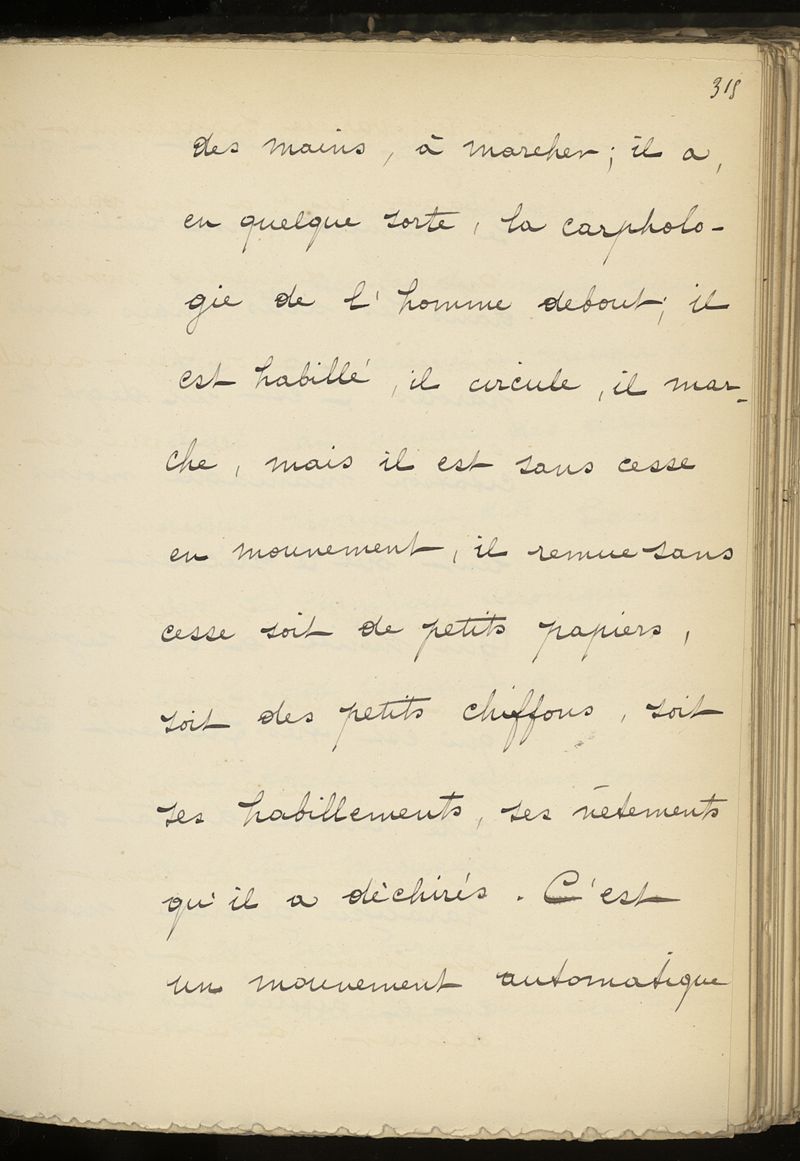 318
des mains, à marcher; il a,
en quelque sorte, la carpholo-
gie de l'homme debout; il
est habillé, il circule, il mar-
che, mais il est sans cesse
en mouvement, il remue sans
cesse soit de petits papiers,
soit des petits chiffons, soit
ses habillements, ses vêtements
qu'il a déchirés. C'est
un mouvement automatique